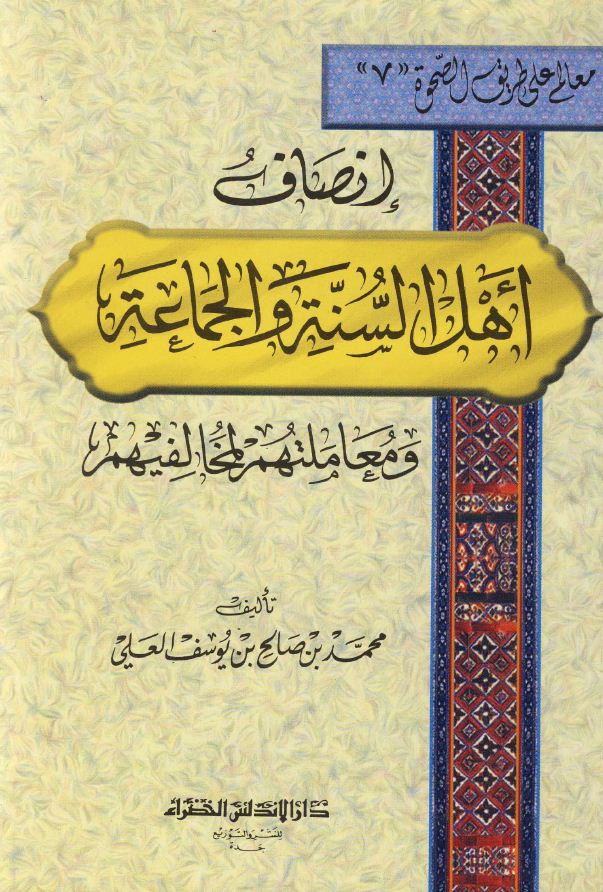 معالم على طريق الصحوة «٧»
إنصاف
أهل السُّنَّةِ والجَمَاعَةِ
وَمُعَامَلَتهُمْ لمُخَالِفيْهِمْ
تأليف
محمَّد بْن صَالح بْن يُوسف العَلي
دار الأندلس الخضراء
للنشر والتوزيع
جدة